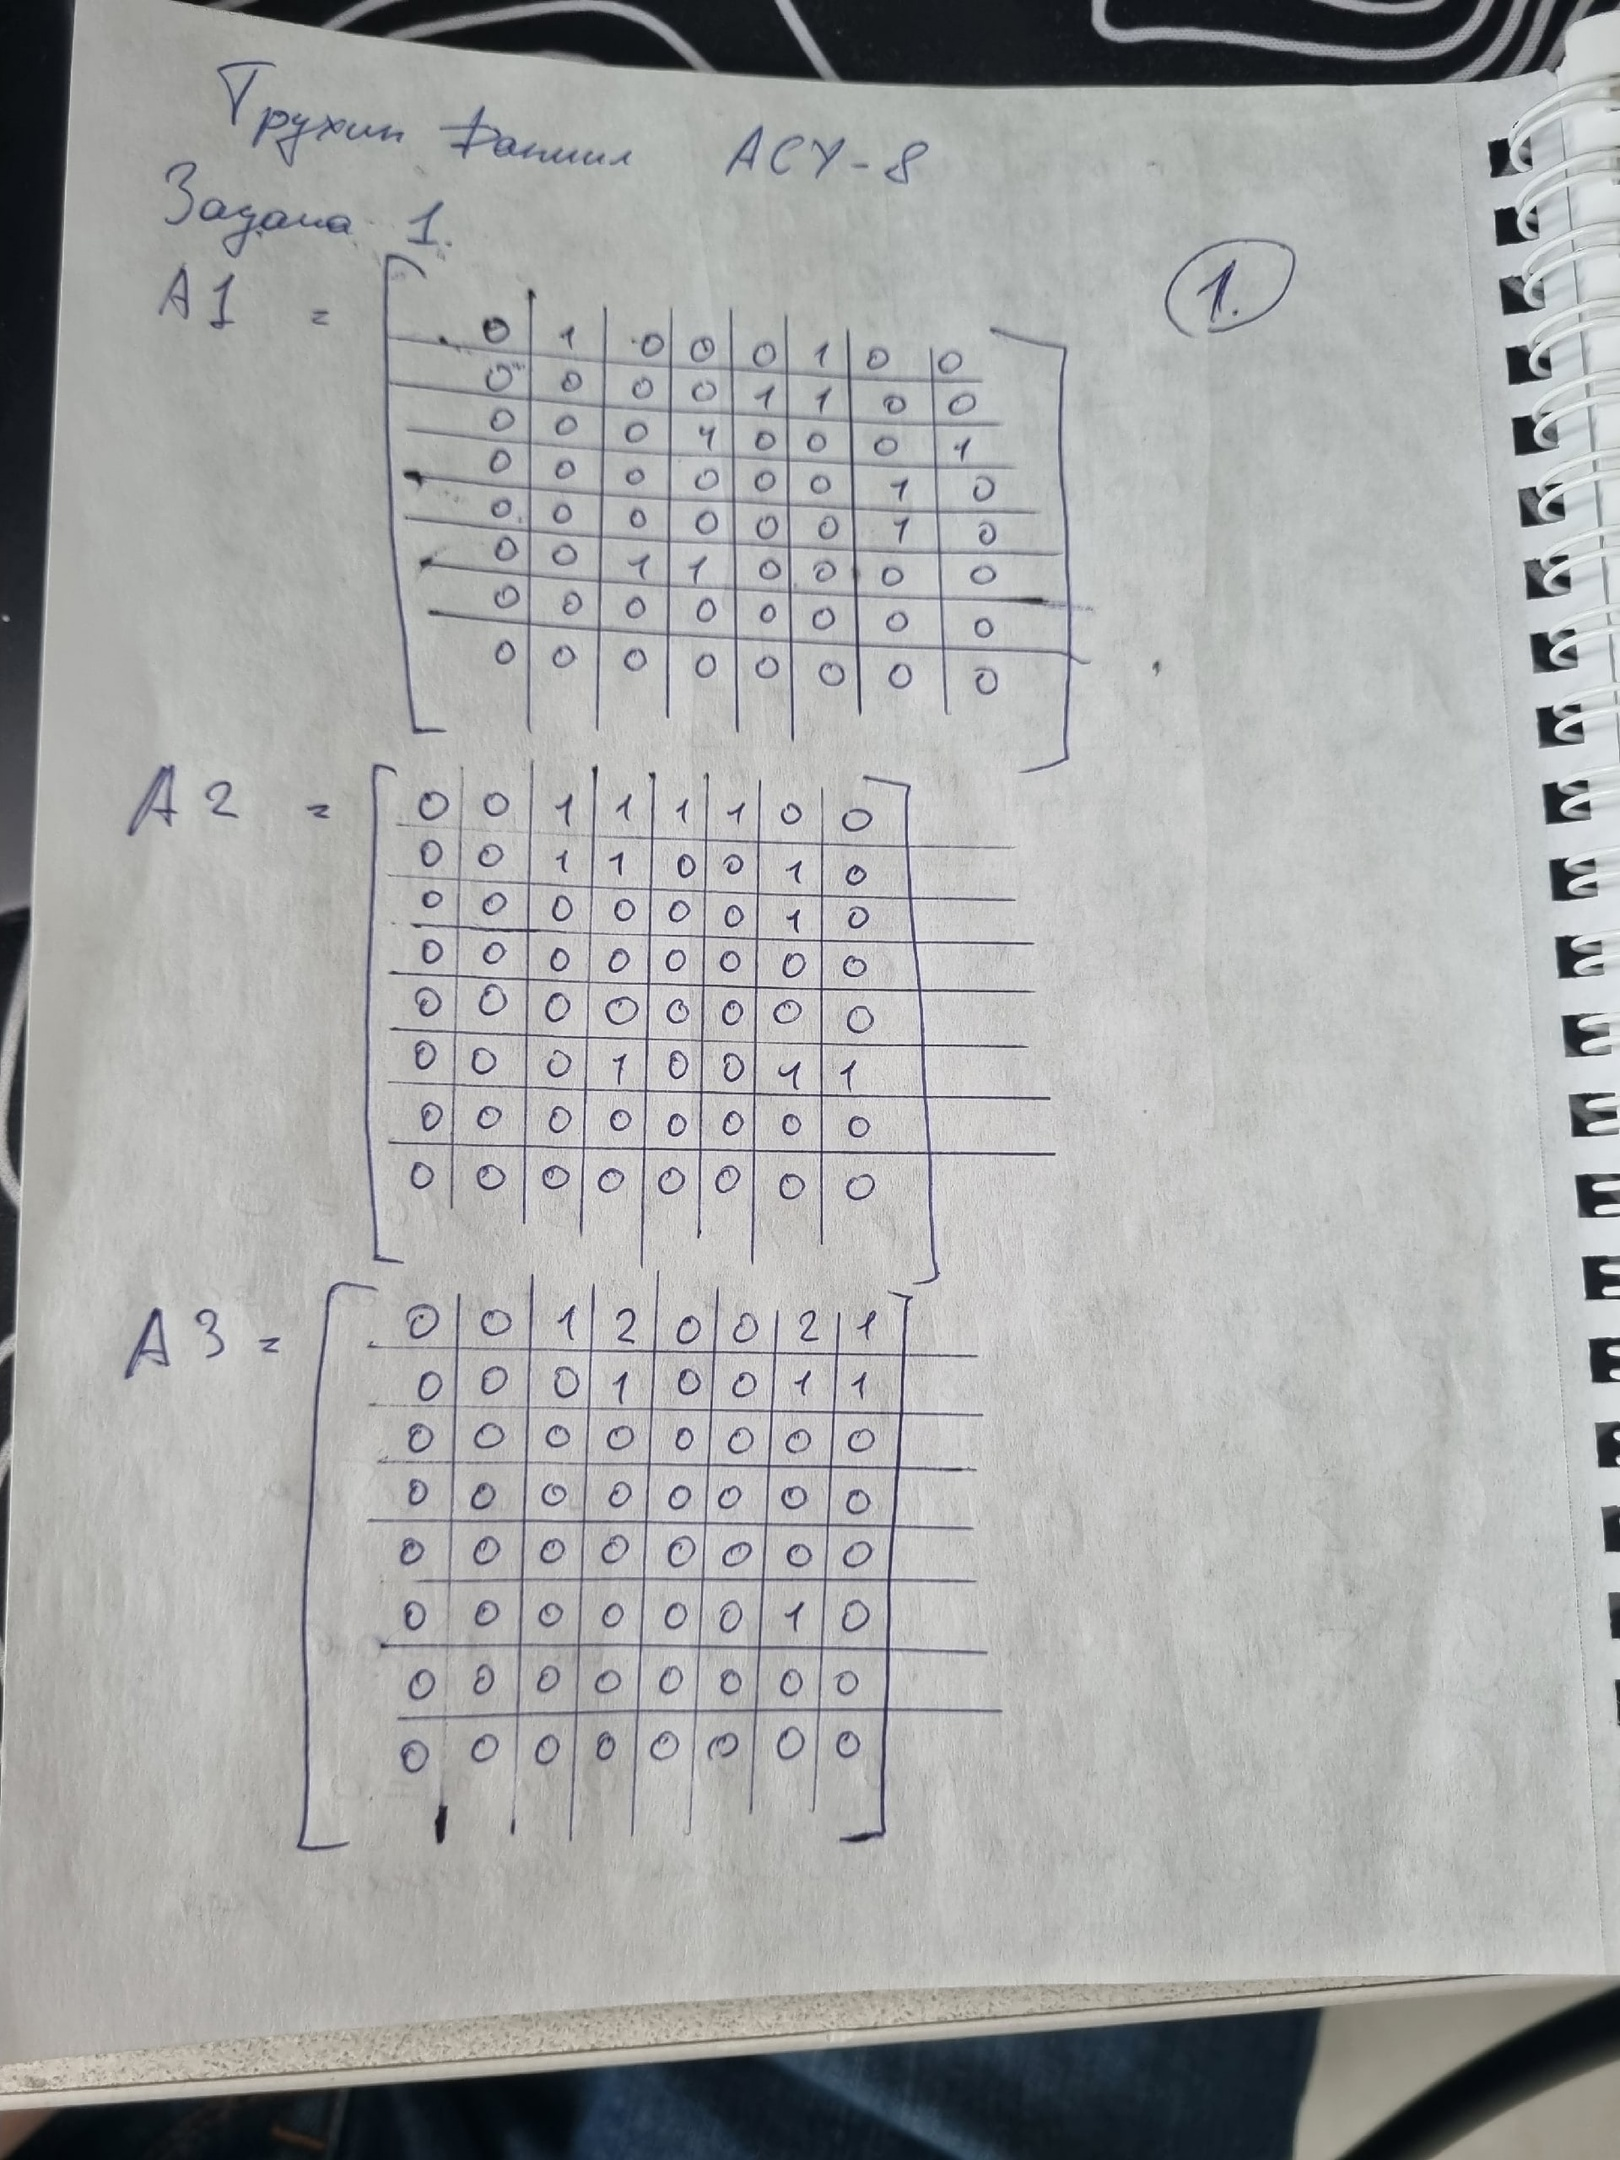 Трухин Даниил АСУ-8
Задача 1.
1.
A1 =
0 1 0 0 0 1 0 0
0 0 0 0 1 1 0 0
0 0 0 1 0 0 0 1
0 0 0 0 0 0 1 0
0 0 0 0 0 0 1 0
0 0 1 1 0 0 0 0
0 0 0 0 0 0 0 0
0 0 0 0 0 0 0 0
A2 =
0 0 1 1 1 1 0 0
0 0 1 1 0 0 1 0
0 0 0 0 0 0 1 0
0 0 0 0 0 0 0 0
0 0 0 0 0 0 0 0
0 0 0 1 0 0 1 1
0 0 0 0 0 0 0 0
0 0 0 0 0 0 0 0
A3 =
0 0 1 2 0 0 2 1
0 0 0 1 0 0 1 1
0 0 0 0 0 0 0 0
0 0 0 0 0 0 0 0
0 0 0 0 0 0 0 0
0 0 0 0 0 0 1 0
0 0 0 0 0 0 0 0
0 0 0 0 0 0 0 0